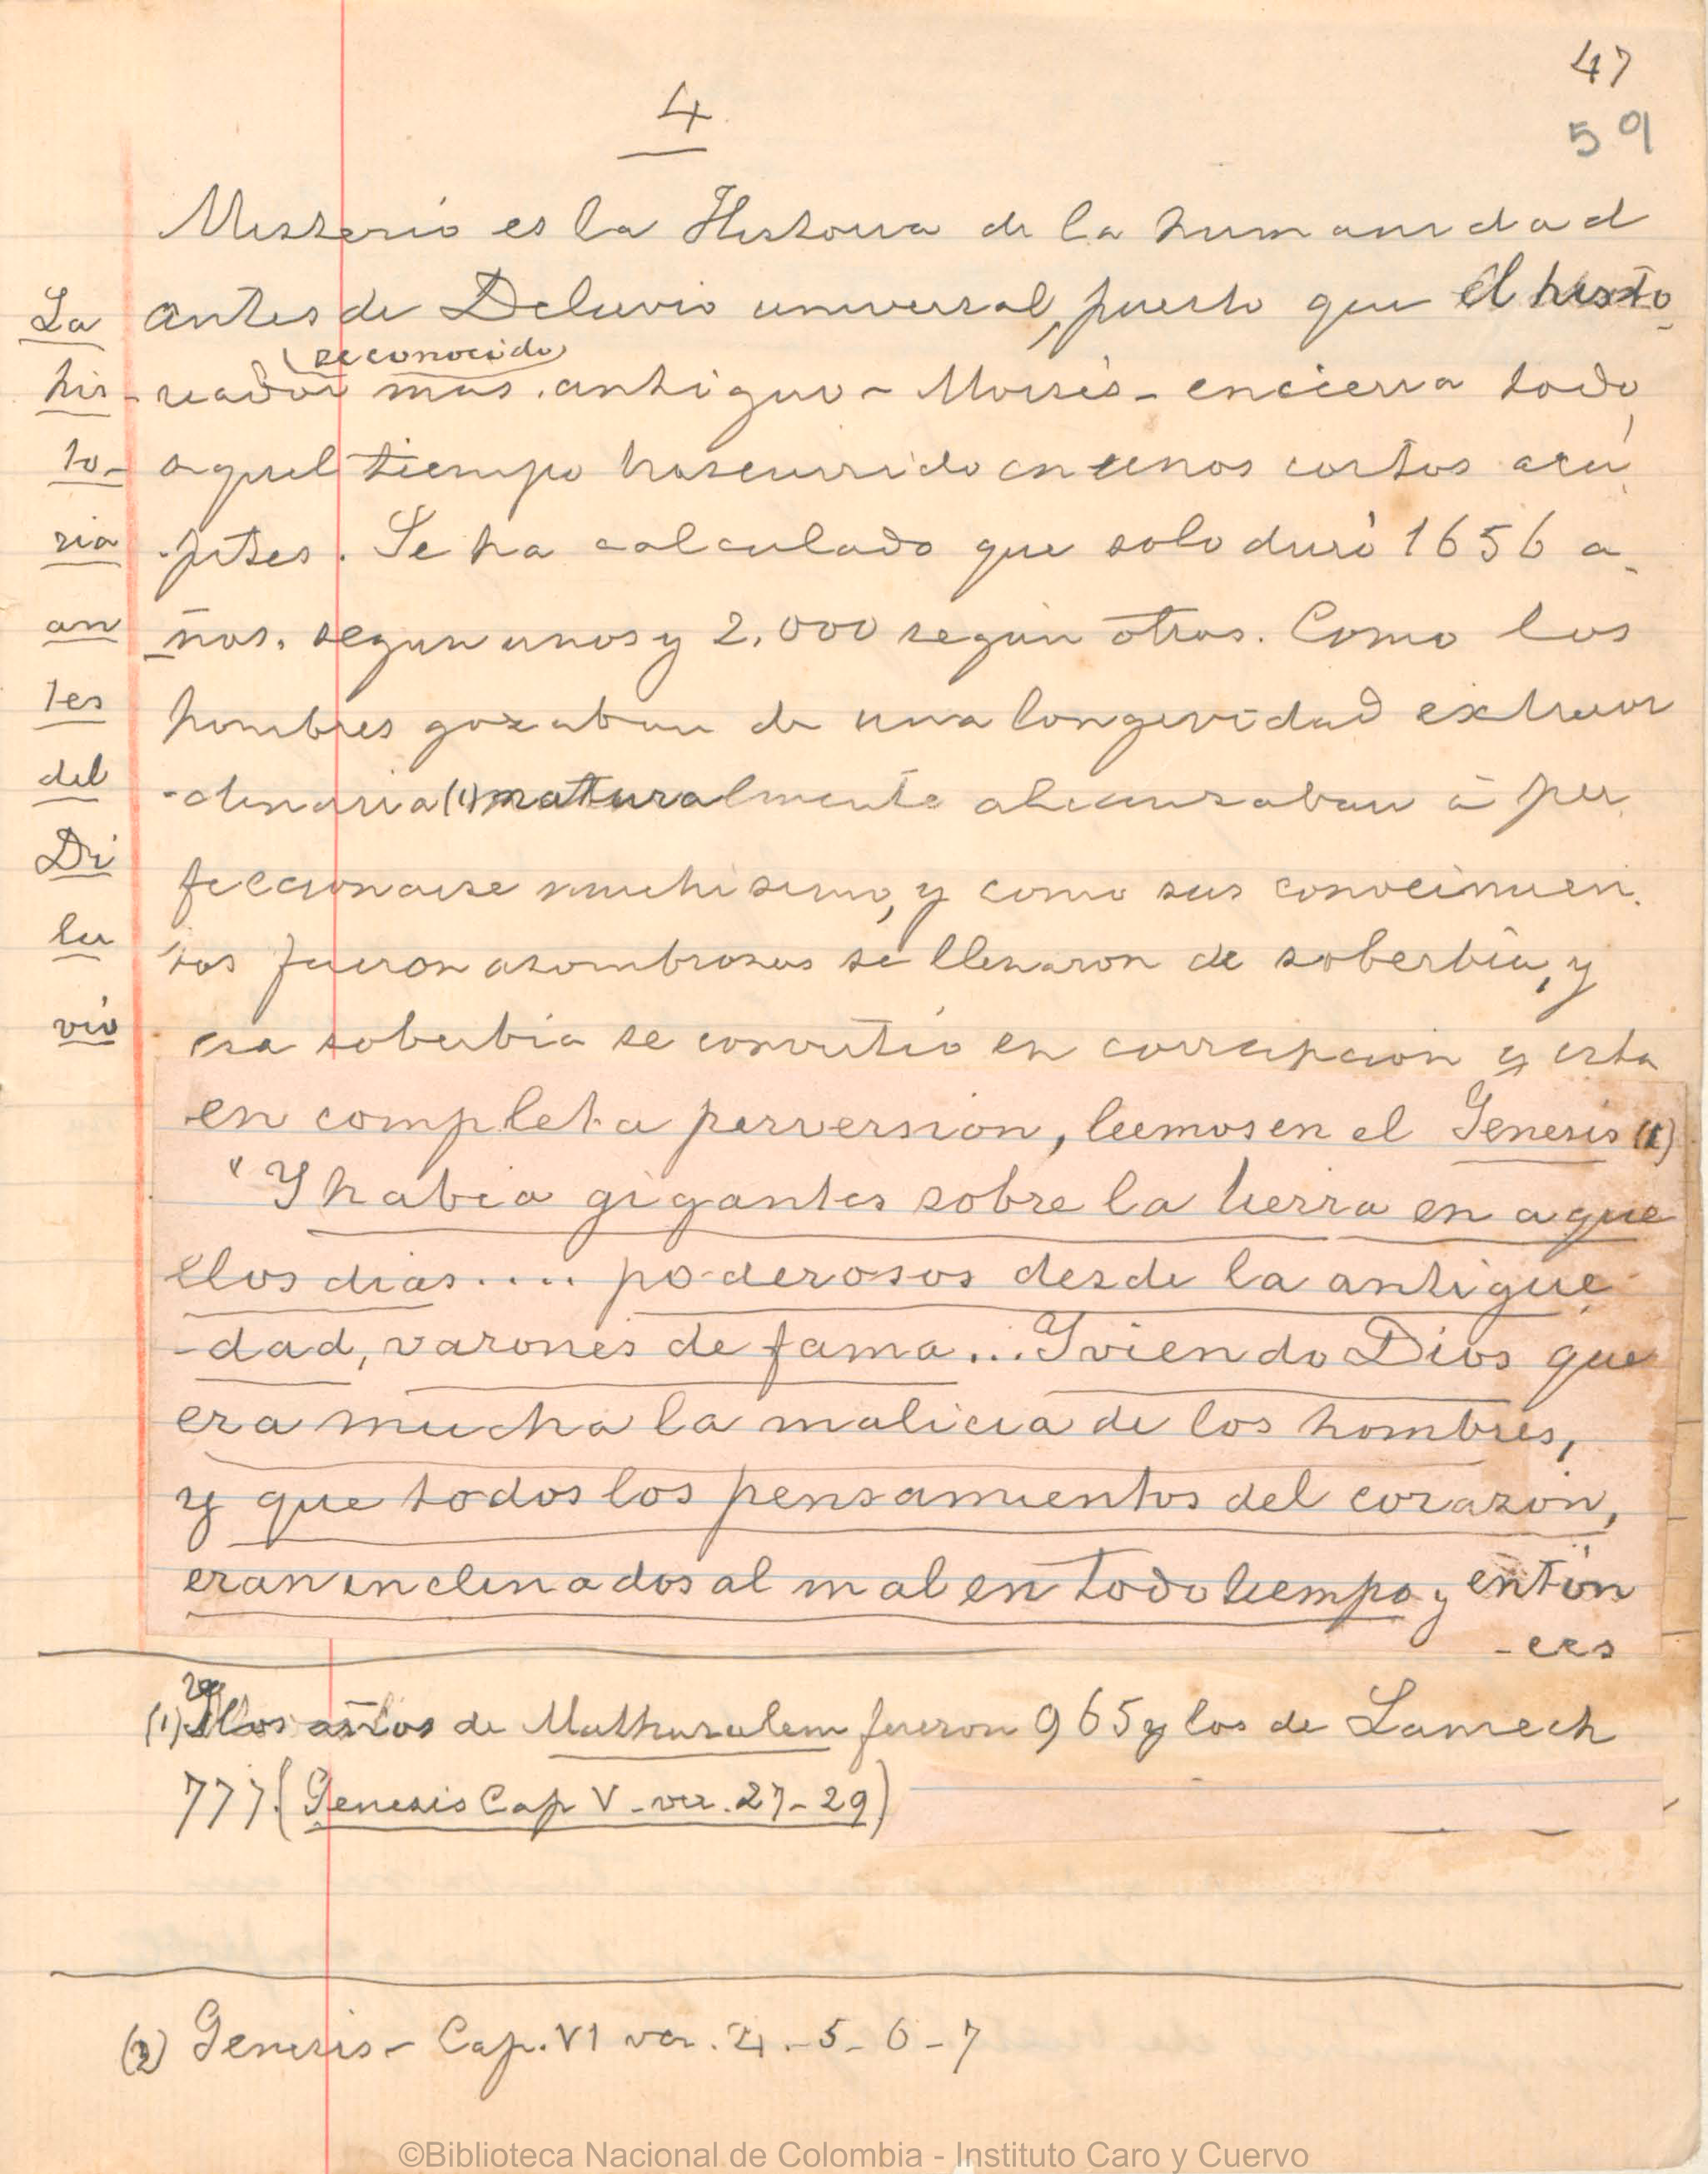 47
59
4
Misterio es la Historia de la humanidad
antes de Diluvio universal, puesto que el histo-
(reconocido)
-riador mas antiguo - Moisés - encierra todo
aquel tiempo trascurrido en unos cortos acá
-pites. Se ha calculado que solo duró 1656 a-
-ños. segun unos y 2.000 según otros. Como los
hombres gozaban de una longevidad extraor
-dinaria (1) naturalmente alcanzaban á per
feccionarse muchisimo, y como sus conocimien-
tos fueron asombrosos se llenaron de soberbia, y
esa soberbia se convirtió en corrupcion y esta
en completa perversion, leemos en el Genesis (1)
"Y habia gigantes sobre la tierra en aque
ellos dias.... poderosos desde la antigüe
-dad, varones de fama... Y viendo Dios que
era mucha la malicia de los hombres,
y que todos los pensamientos del corazón,
eran inclinados al mal en todo tiempo, entón
-ces
La
his-
to-
ria
an
tes
del
Di
lu
vio
(1) los años de Mathusalem fueron 965 y los de Lamech
777. (Genesis Cap V - ver. 27-29)
(2) Genesis - Cap. VI ver. 4.-5-6-7
©Biblioteca Nacional de Colombia - Instituto Caro y Cuervo